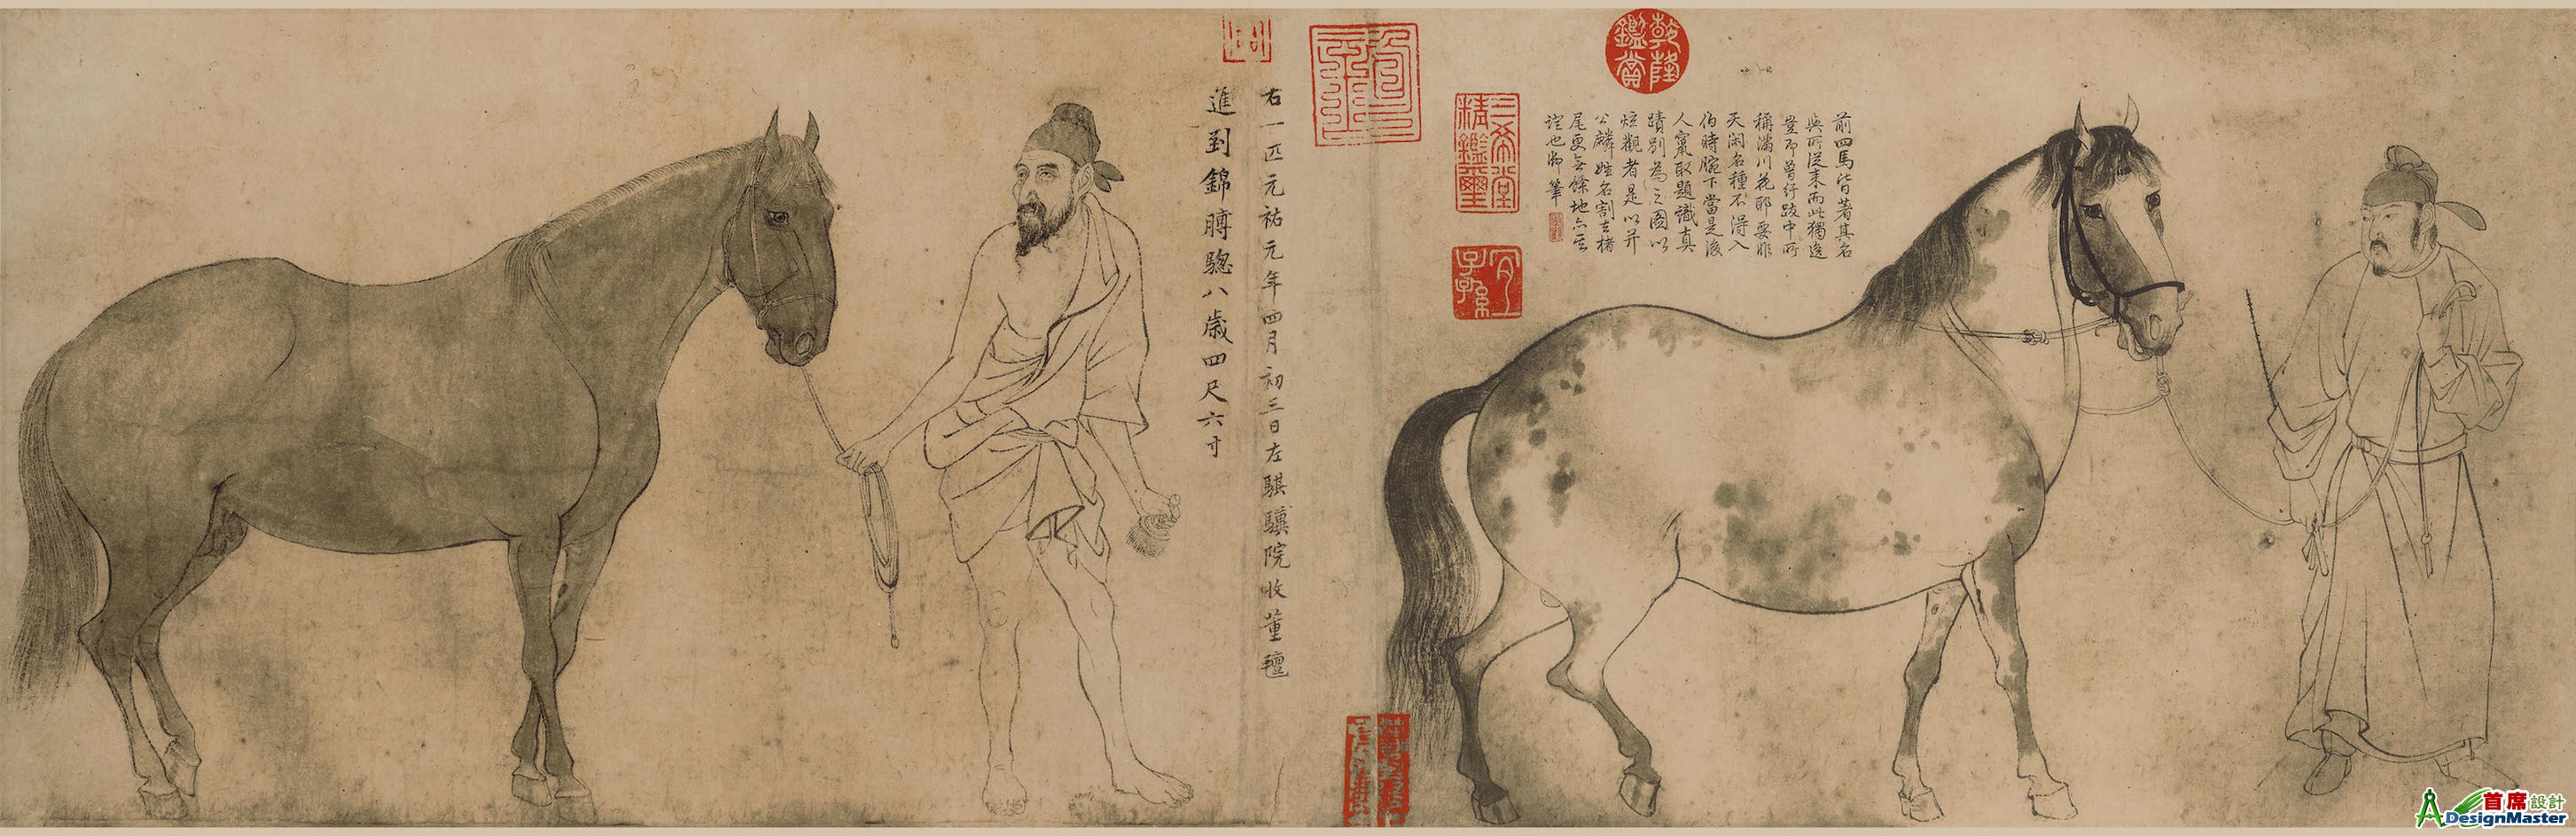 乾隆鑑賞
前四馬皆著其名
與所從来而此獨逸
豈即曾紆跋中所
稱滿川花耶要非
天閑名種不得入
伯時腕下當是後
人竄取題識真
蹟別為之圖以
炫觀者是以并
公麟姓名割去楮
尾更無餘地亦
證也御筆
三希堂精鑑璽
宜子孫
右一匹元祐元年四月初三日左騏驥院收董氊
進到錦膊驄八歲四尺六寸
首席設計
DesignMaster